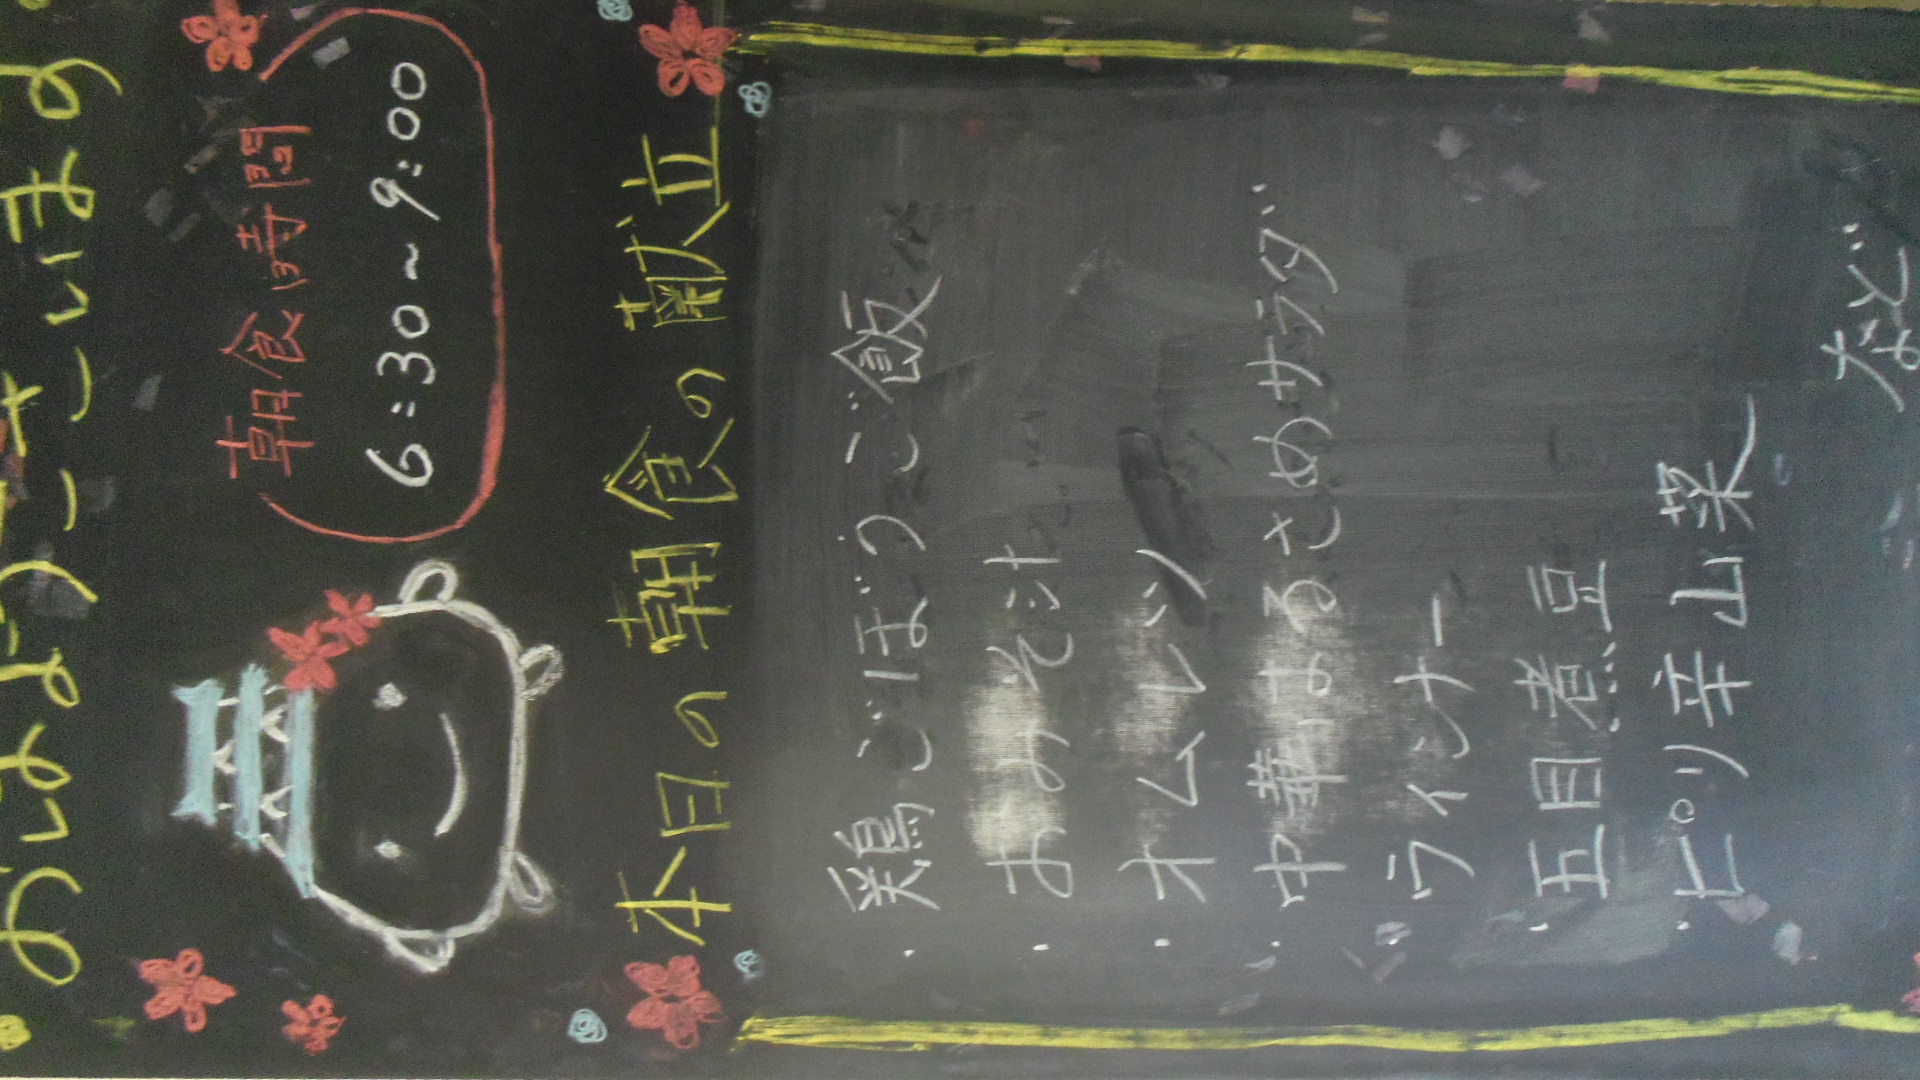 おはようございます
朝食時間
6:30~9:00
本日の朝食の献立
・鶏ごぼうご飯
・おみそ汁
・オムレツ
・中華はるさめのサラダ
・ウィンナー
・五目煮豆
・ピリ辛山菜
など